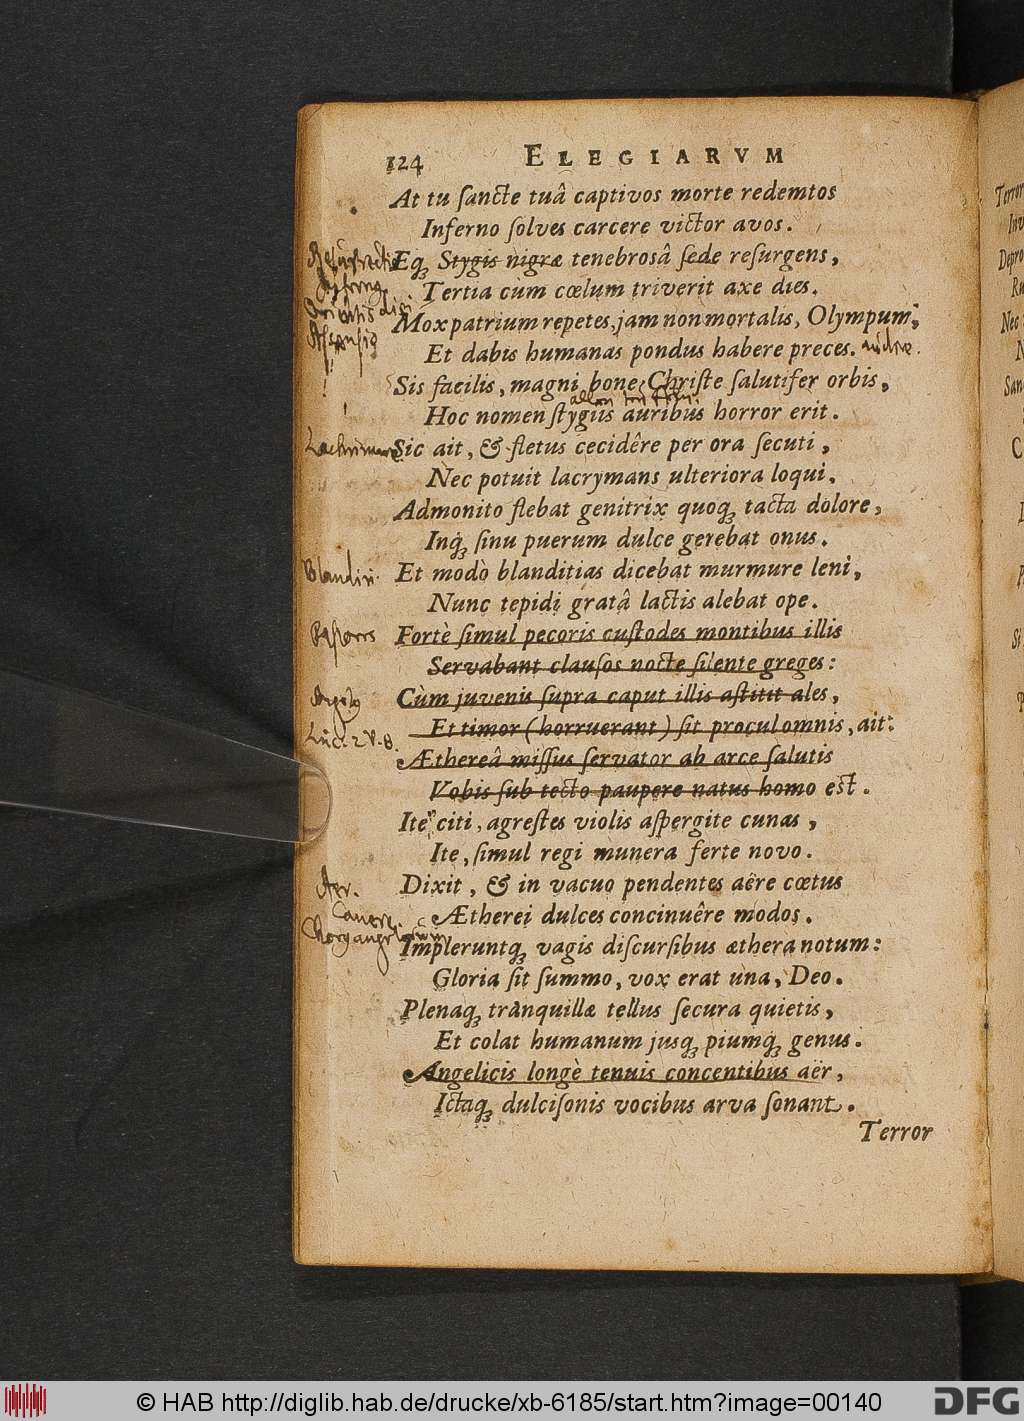 124 ELEGIARVM
At tu sancte tuâ captivos morte redemtos
Inferno solves carcere victor avos.
Eq́ Stygis nigræ tenebrosâ sede resurgens,
Tertia cùm cœlum triverit axe dies.
Mox patrium repetes, jam non mortalis, Olympum;
Et dabis humanas pondus habere preces.
Sis facilis, magni bone Christe salutifer orbis,
Hoc nomen stygiis auribus horror erit.
Lachrimare
Sic ait, & fletus cecidêre per ora secuti,
Nec potuit lacrymans ulteriora loqui.
Admonito flebat genitrix quoq́ tacta dolore,
Inq́ sinu puerum dulce gerebat onus.
Blandiri.
Et modò blanditias dicebat murmure leni,
Nunc tepidi gratâ lactis alebat ope.
Pastores
Fortè simul pecoris custodes montibus illis
Servabant clausos nocte silente greges:
Cùm juvenis supra caput illis astitit ales,
Luc. 2 V. 8.
Et timor (horruerant) sit procul omnis, ait:
Æthereâ missus servator ab arce salutis
Vobis sub tecto paupere natus homo est.
Ite citi, agrestes violis aspergite cunas,
Ite, simul regi munera ferte novo.
Aer.
Dixit, & in vacuo pendentes aëre cœtus
Canere.
Ætherei dulces concinuêre modos.
Impleruntq́ vagis discursibus æthera notum:
Gloria sit summo, vox erat una, Deo.
Plenaq́ tranquillæ tellus secura quietis,
Et colat humanum jusq́ piumq́ genus.
Angelicis longè tenuis concentibus aër,
Ictaq́ dulcisonis vocibus arva sonant.
Terror
© HAB http://diglib.hab.de/drucke/xb-6185/start.htm?image=00140
DFG